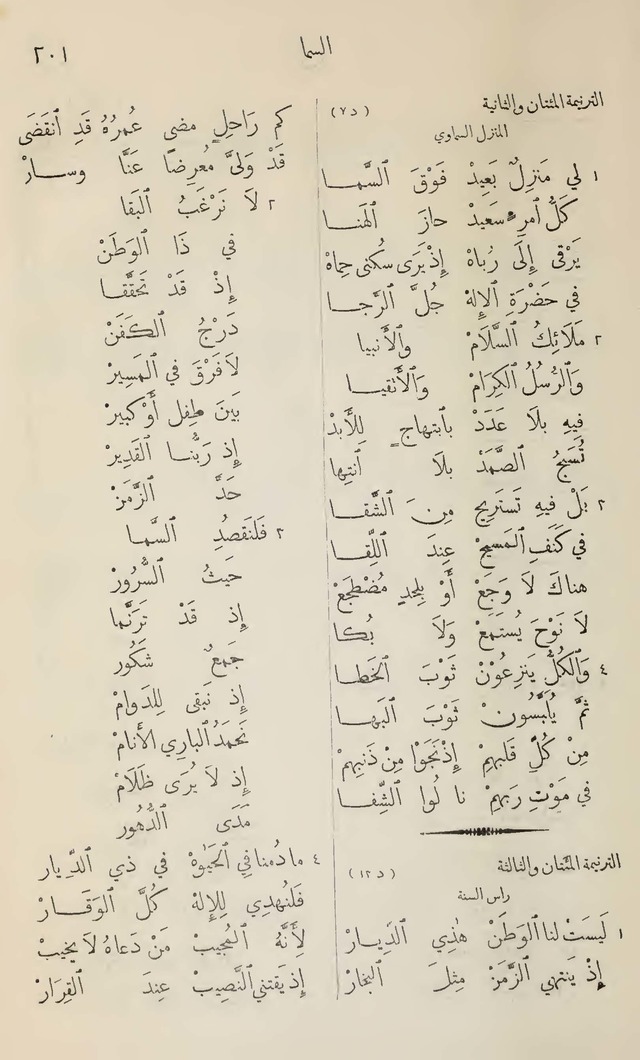 السما
٢٠١
الترنيمة المئتان والثانية (د٧)
المنزل السماوي
١ لي مَنزِلٌ بَعِيدْ فَوْقَ السَّمـا
كلُّ أمرِءٍ سَعيدْ حازَ الهَنـا
يَرْقى إِلَى رُباهْ إِذْ يَرَى سكنى حِماهْ
في حَضْرَةِ الإِلهْ جُلَّ الرَّجـا
٢ مَلَائِكُ السَّلَامْ والأَنبيا
وَالرُّسُلُ الكِرَامْ وَالأَتقيـا
فيهِ بلاَ عَدَدْ بأبتهاجٍ لِلأَبدْ
تُسَبِّحُ الصَّمَدْ بلاَ أنتِها
٣ بَلْ فيهِ تَسْتَرِيح مِنَ الشَّقـا
في كَنَفِ المَسيحْ عِندَ اللِّقـا
هناكَ لاَ وَجَعْ أَوْ بِلحدٍ مُضْطَجَعْ
لاَ نَوْحَ يُستَمَعْ وَلاَ بُكـا
٤ وَالكُلُّ يَنزِعُونْ ثَوْبَ الخَطـا
ثُمَّ يُلبَسُونْ ثَوْبَ البَهـا
مِنْ كُلِّ قلبِهِمْ إِذْ نَجَوْا مِنْ ذَنبِهِمْ
في مَوْتِ رَبِهِمْ نا لُوا الشِّفـا
الترنيمة المئتان والثالثة (د١٢)
راس السنة
١ لَيسَتْ لنا الوَطَنْ هٰذِي الدِّيـارْ
إِذْ يَنتهي الزَّمَنْ مِثلَ البُخارْ
كم رَاحلٍ مضى عُمرُهُ قَدِ أنقَضَى
قَدْ وَلىَّ مُعرِضًا عَنَّا وسـارْ
٢ لاَ نَرْغَبُ البَقا
في ذَا الوَطَنْ
إِذْ قَدْ تَحَقَّقـا
دَرْجُ الكَفَنْ
لاَ فَرْقَ في المَسِيرْ
بَينَ طِفلٍ أَوْ كَبيرْ
إِذ رَبُّنـا القَدِيرْ
حَدَّ الزَّمَنْ
٣ فَلنَقصُدِ السَّما
حَيثُ السُّرُورْ
إِذ قَدْ تَرَنَّما
جَمعٌ شَكُور
إِذ نَبقى لِلدَوامْ
نَحمَدُ الباري الأنامْ
إِذ لاَ يُرَى ظَلَامْ
مَدَى الدُّهُور
٤ ما دُمنا في الحَيٰوةْ في ذي الدِّيار
فَلنُهدِي لِلإِلهْ كُلَّ الوَقَـارْ
لأَنَّهُ المُجيبْ مَنْ دَعاهُ لاَ يخيبْ
إِذ يَقتني النَّصِيبْ عِندَ القِرَارْ